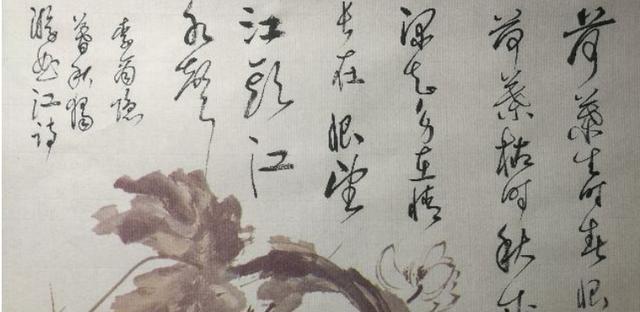 荷葉生时春恨
荷葉枯时秋
深知身在情
长在悵望
江頭江
水聲
李商隐
暮秋獨
游曲江詩